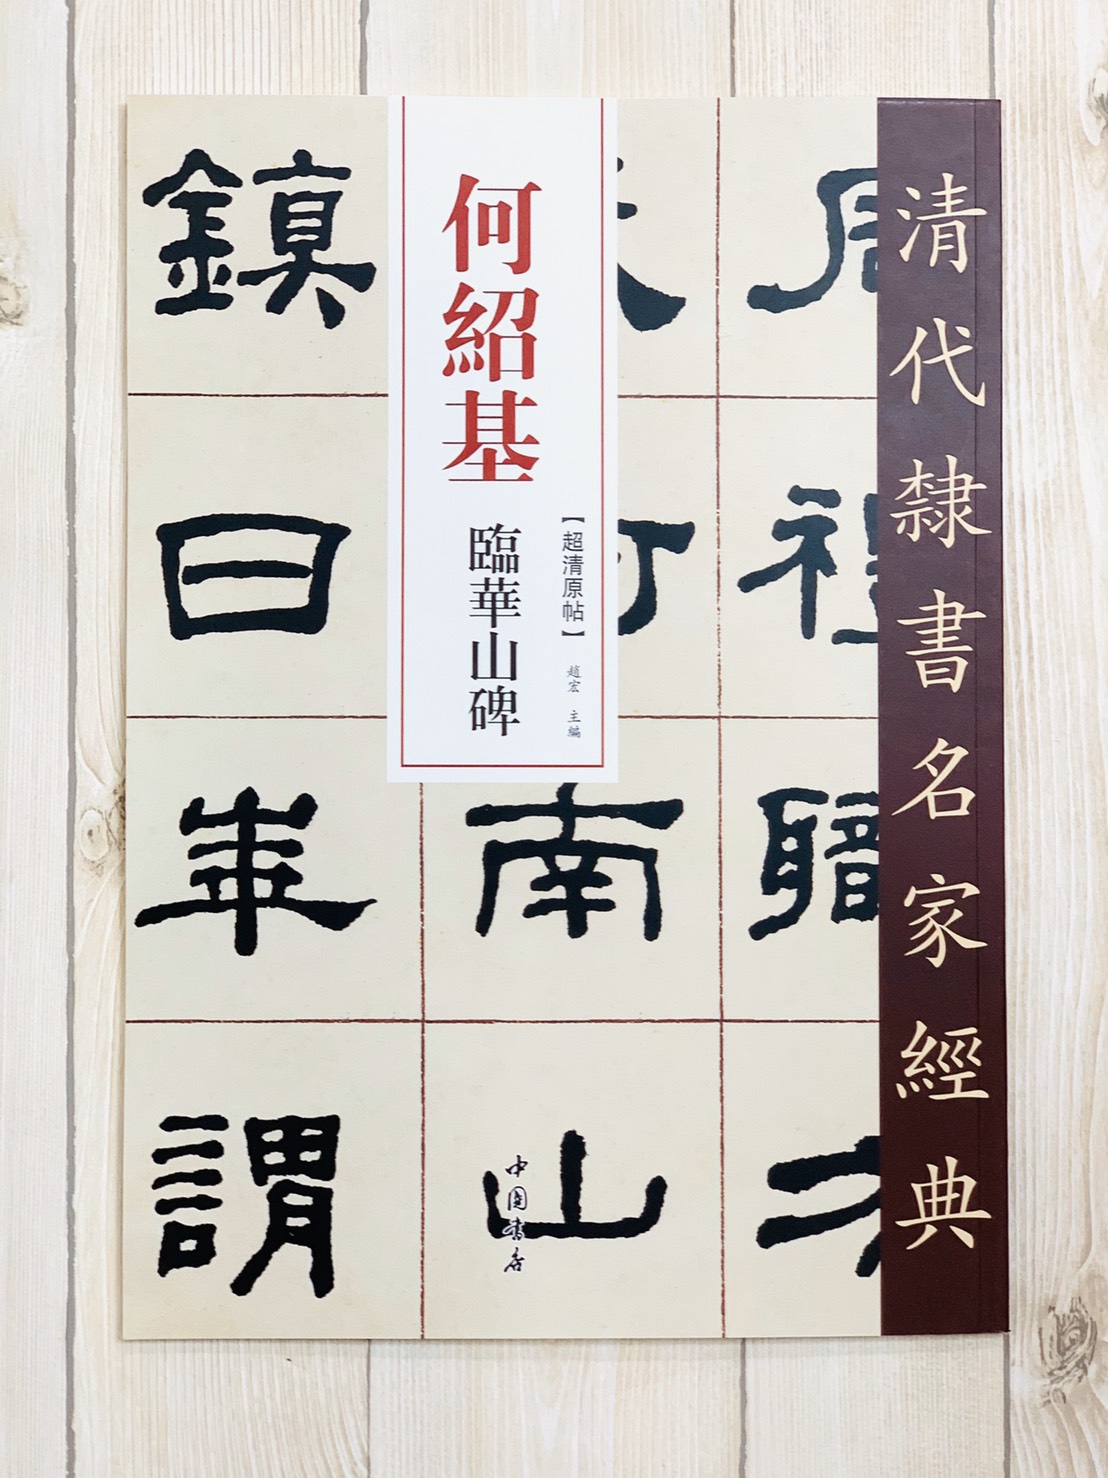 清代隸書名家經典
何紹基
臨華山碑
【超清原帖】
趙宏 主編
南山
鎮曰華謂
中國書店